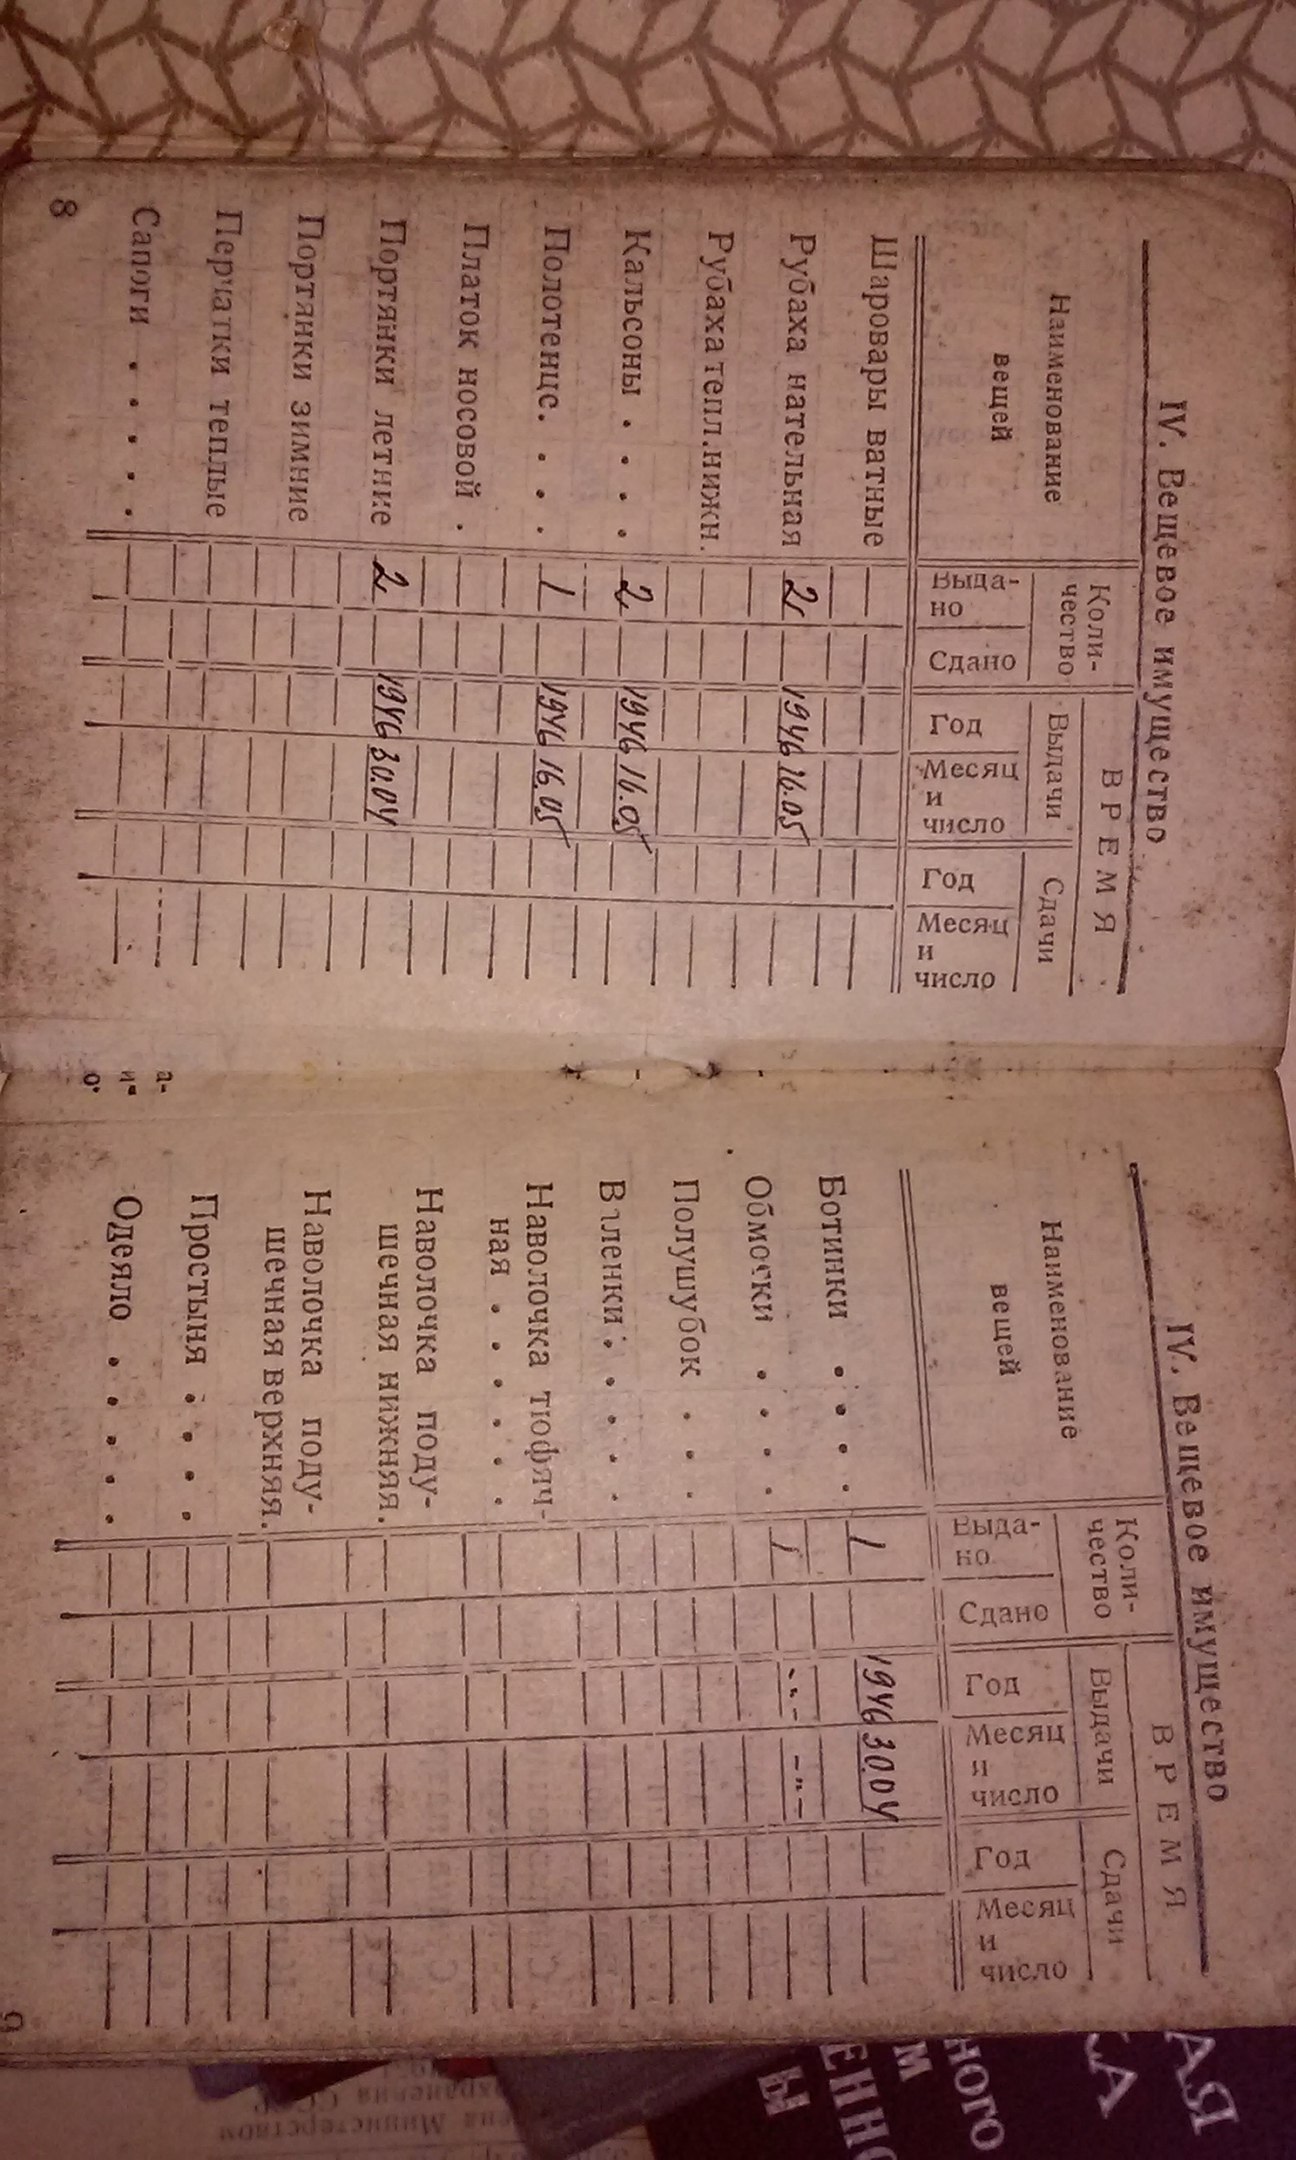 IV. Вещевое имущество
Наименование вещей
Коли-
чество
ВРЕМЯ
Выдачи
Сдачи
Выда-
но
Сдано
Год
Месяц
и
число
Год
Месяц
и
число
Шаровары ватные
Рубаха нательная 2 1946 16.05
Рубаха тепл. нижн.
Кальсоны . . . . 2 1946 16.05
Полотенце. . . . 1 1946 16.05
Платок носовой .
Портянки летние 2 1946 30.04
Портянки зимние
Перчатки теплые
Сапоги . . . . .
8
а-
и
о
IV. Вещевое имущество
Наименование вещей
Коли-
чество
ВРЕМЯ
Выдачи
Сдачи
Выда-
но
Сдано
Год
Месяц
и
число
Год
Месяц
и
число
Ботинки . . . . 1 1946 30.04
Обмотки . . . . 1 -"- -"-
Полушубок . . .
Валенки . . . . .
Наволочка тюфяч-
ная . . . . . .
Наволочка поду-
шечная нижняя.
Наволочка поду-
шечная верхняя.
Простыня . . . .
Одеяло . . . . .
9
АЯ
КА
НОГО
М
ЕННО
Ы